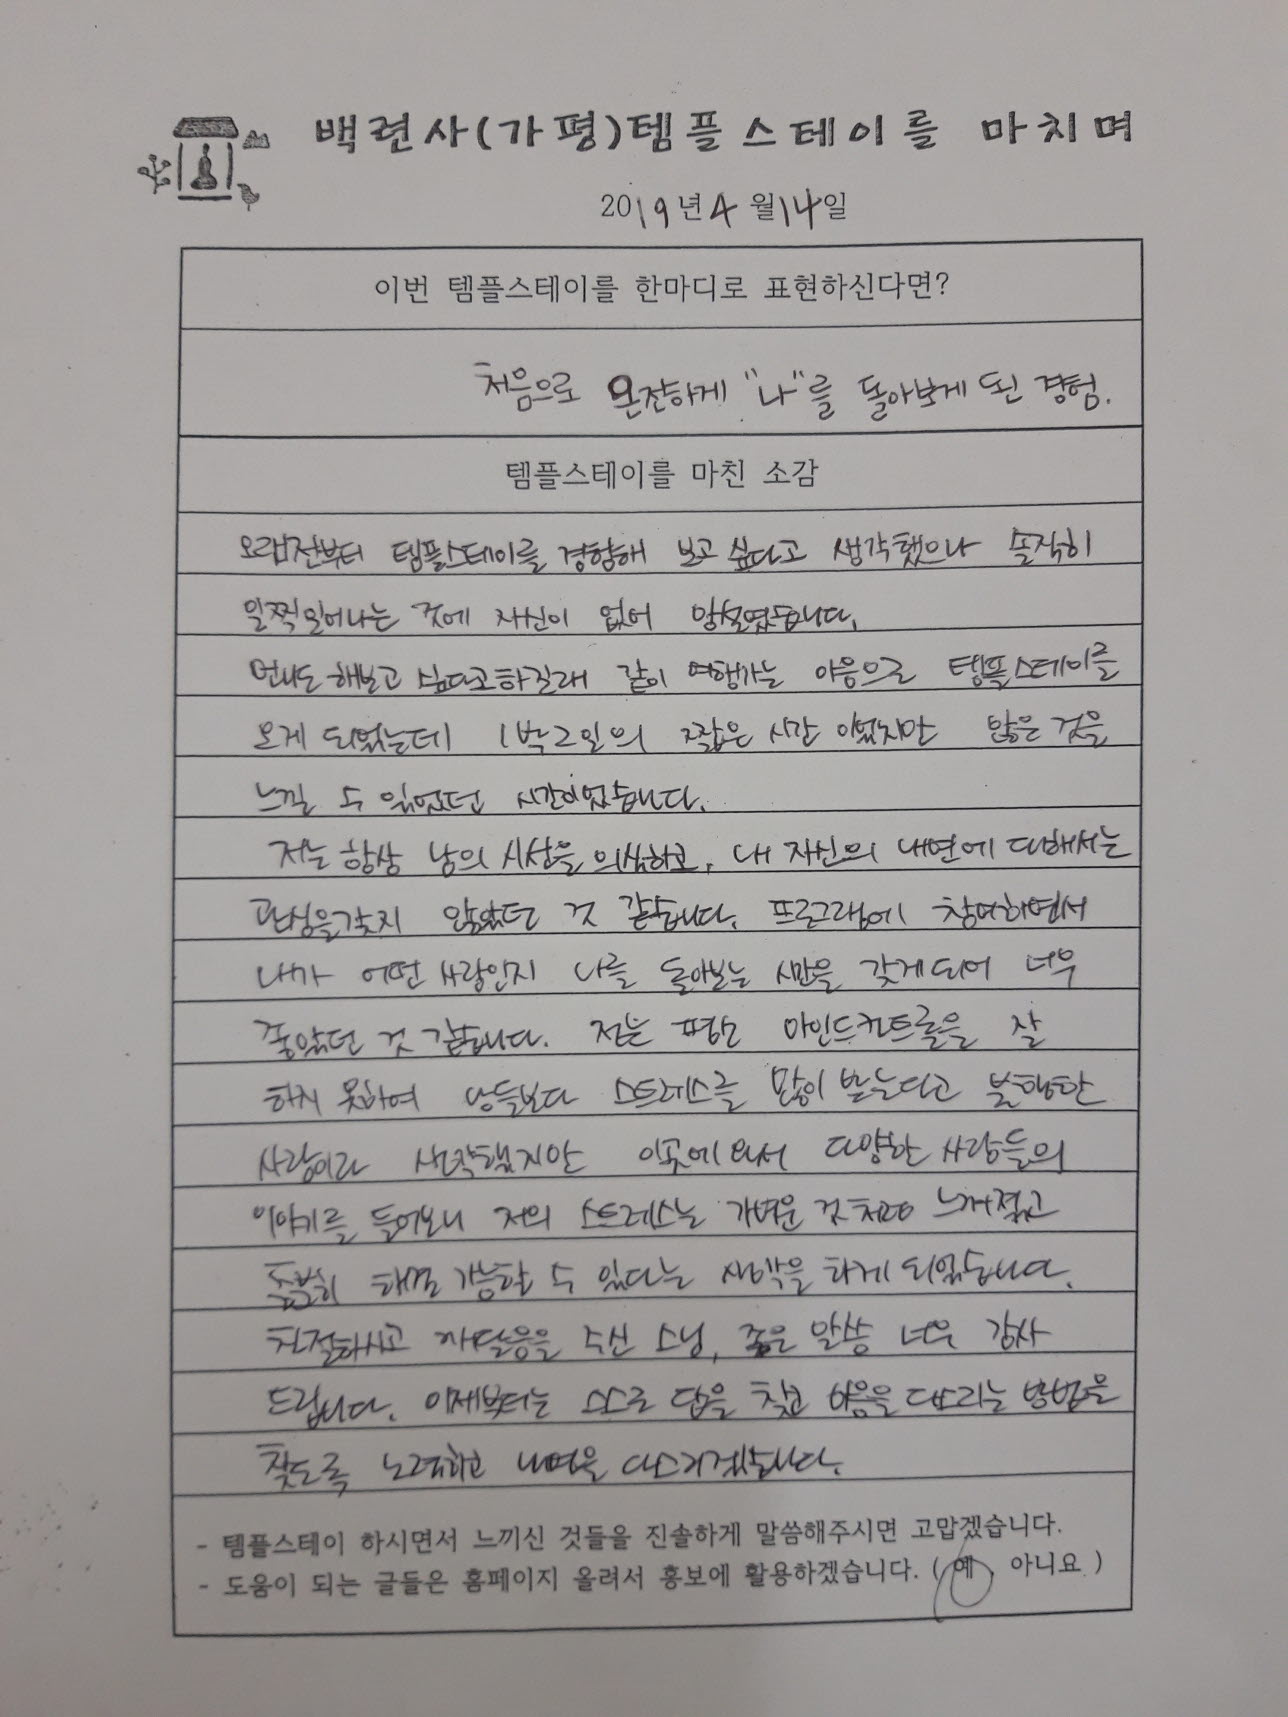 백련사(가평)템플스테이를 마치며
2019년 4월 14일
이번 템플스테이를 한마디로 표현하신다면?
처음으로 온전하게 "나"를 돌아보게 된 경험.
템플스테이를 마친 소감
오래전부터 템플스테이를 경험해 보고 싶다고 생각했으나 솔직히
일찍일어나는 것에 자신이 없어 망설였습니다.
언니도 해보고 싶다고하길래 같이 여행가는 마음으로 템플스테이를
오게 되었는데 1박2일의 짧은 시간 이었지만 많은 것을
느낄 수 있었던 시간이었습니다.
저는 항상 남의 시선을 의식하고, 내 자신의 내면에 대해서는
관심을갖지 않았던 것 같습니다. 프로그램에 참여하면서
내가 어떤 사람인지 나를 돌아보는 시간을 갖게되어 너무
좋았던 것 같습니다. 저는 평소 마인드컨트롤을 잘
하지 못하여 남들보다 스트레스를 많이 받는다고 불행한
사람이라 생각했지만 이곳에 와서 다양한 사람들의
이야기를 들어보니 저의 스트레스는 가벼운 것처럼 느껴졌고
충분히 해결 가능할 수 있다는 생각을 하게 되었습니다.
친절하시고 깨달음을 주신 스님, 좋은 말씀 너무 감사
드립니다. 이제부터는 스스로 답을 찾고 마음을 다스리는 방법을
찾도록 노력하고 내면을 다스리겠습니다.
- 템플스테이 하시면서 느끼신 것들을 진솔하게 말씀해주시면 고맙겠습니다.
- 도움이 되는 글들은 홈페이지 올려서 홍보에 활용하겠습니다. ( 예 , 아니요 )